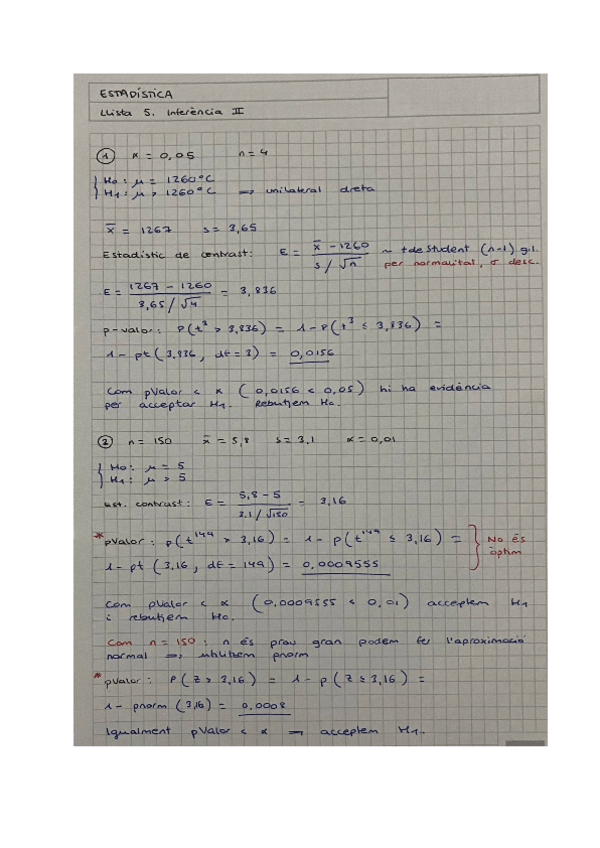 ESTADÍSTICA
Llista 5. Inferència II
① α = 0,05 n = 4
H0: μ = 1260°C
H1: μ > 1260°C → unilateral dreta
x̄ = 1267 s = 3,65
Estadístic de contrast: E = x̄ - 1260 / s / √n ~ t de Student (n-1) g.l.
per normalitat, σ desc.
E = 1267 - 1260 / 3,65 / √4 = 3,836
p-valor: P(t³ > 3,836) = 1 - P(t³ ≤ 3,836) =
1 - pt (3,836, df = 3) = 0,0156
Com pValor < α (0,0156 < 0,05) hi ha evidència
per acceptar H1. Rebutjem H0.
② n = 150 x̄ = 5,8 s = 3,1 α = 0,01
H0: μ = 5
H1: μ > 5
Est. contrast: E = 5,8 - 5 / 3,1 / √150 = 3,16
*pValor: P(t¹⁴⁹ > 3,16) = 1 - P(t¹⁴⁹ ≤ 3,16) = No és
1 - pt (3,16, df = 149) = 0,0009555 òptim
Com pValor < α (0,0009555 < 0,01) acceptem H1
i rebutjem H0.
Com n = 150; n és prou gran podem fer l'aproximació
normal ⇒ utilitzem pnorm
*pValor: P(Z > 3,16) = 1 - P(Z ≤ 3,16) =
1 - pnorm (3,16) = 0,0008
Igualment pValor < α → acceptem H1.